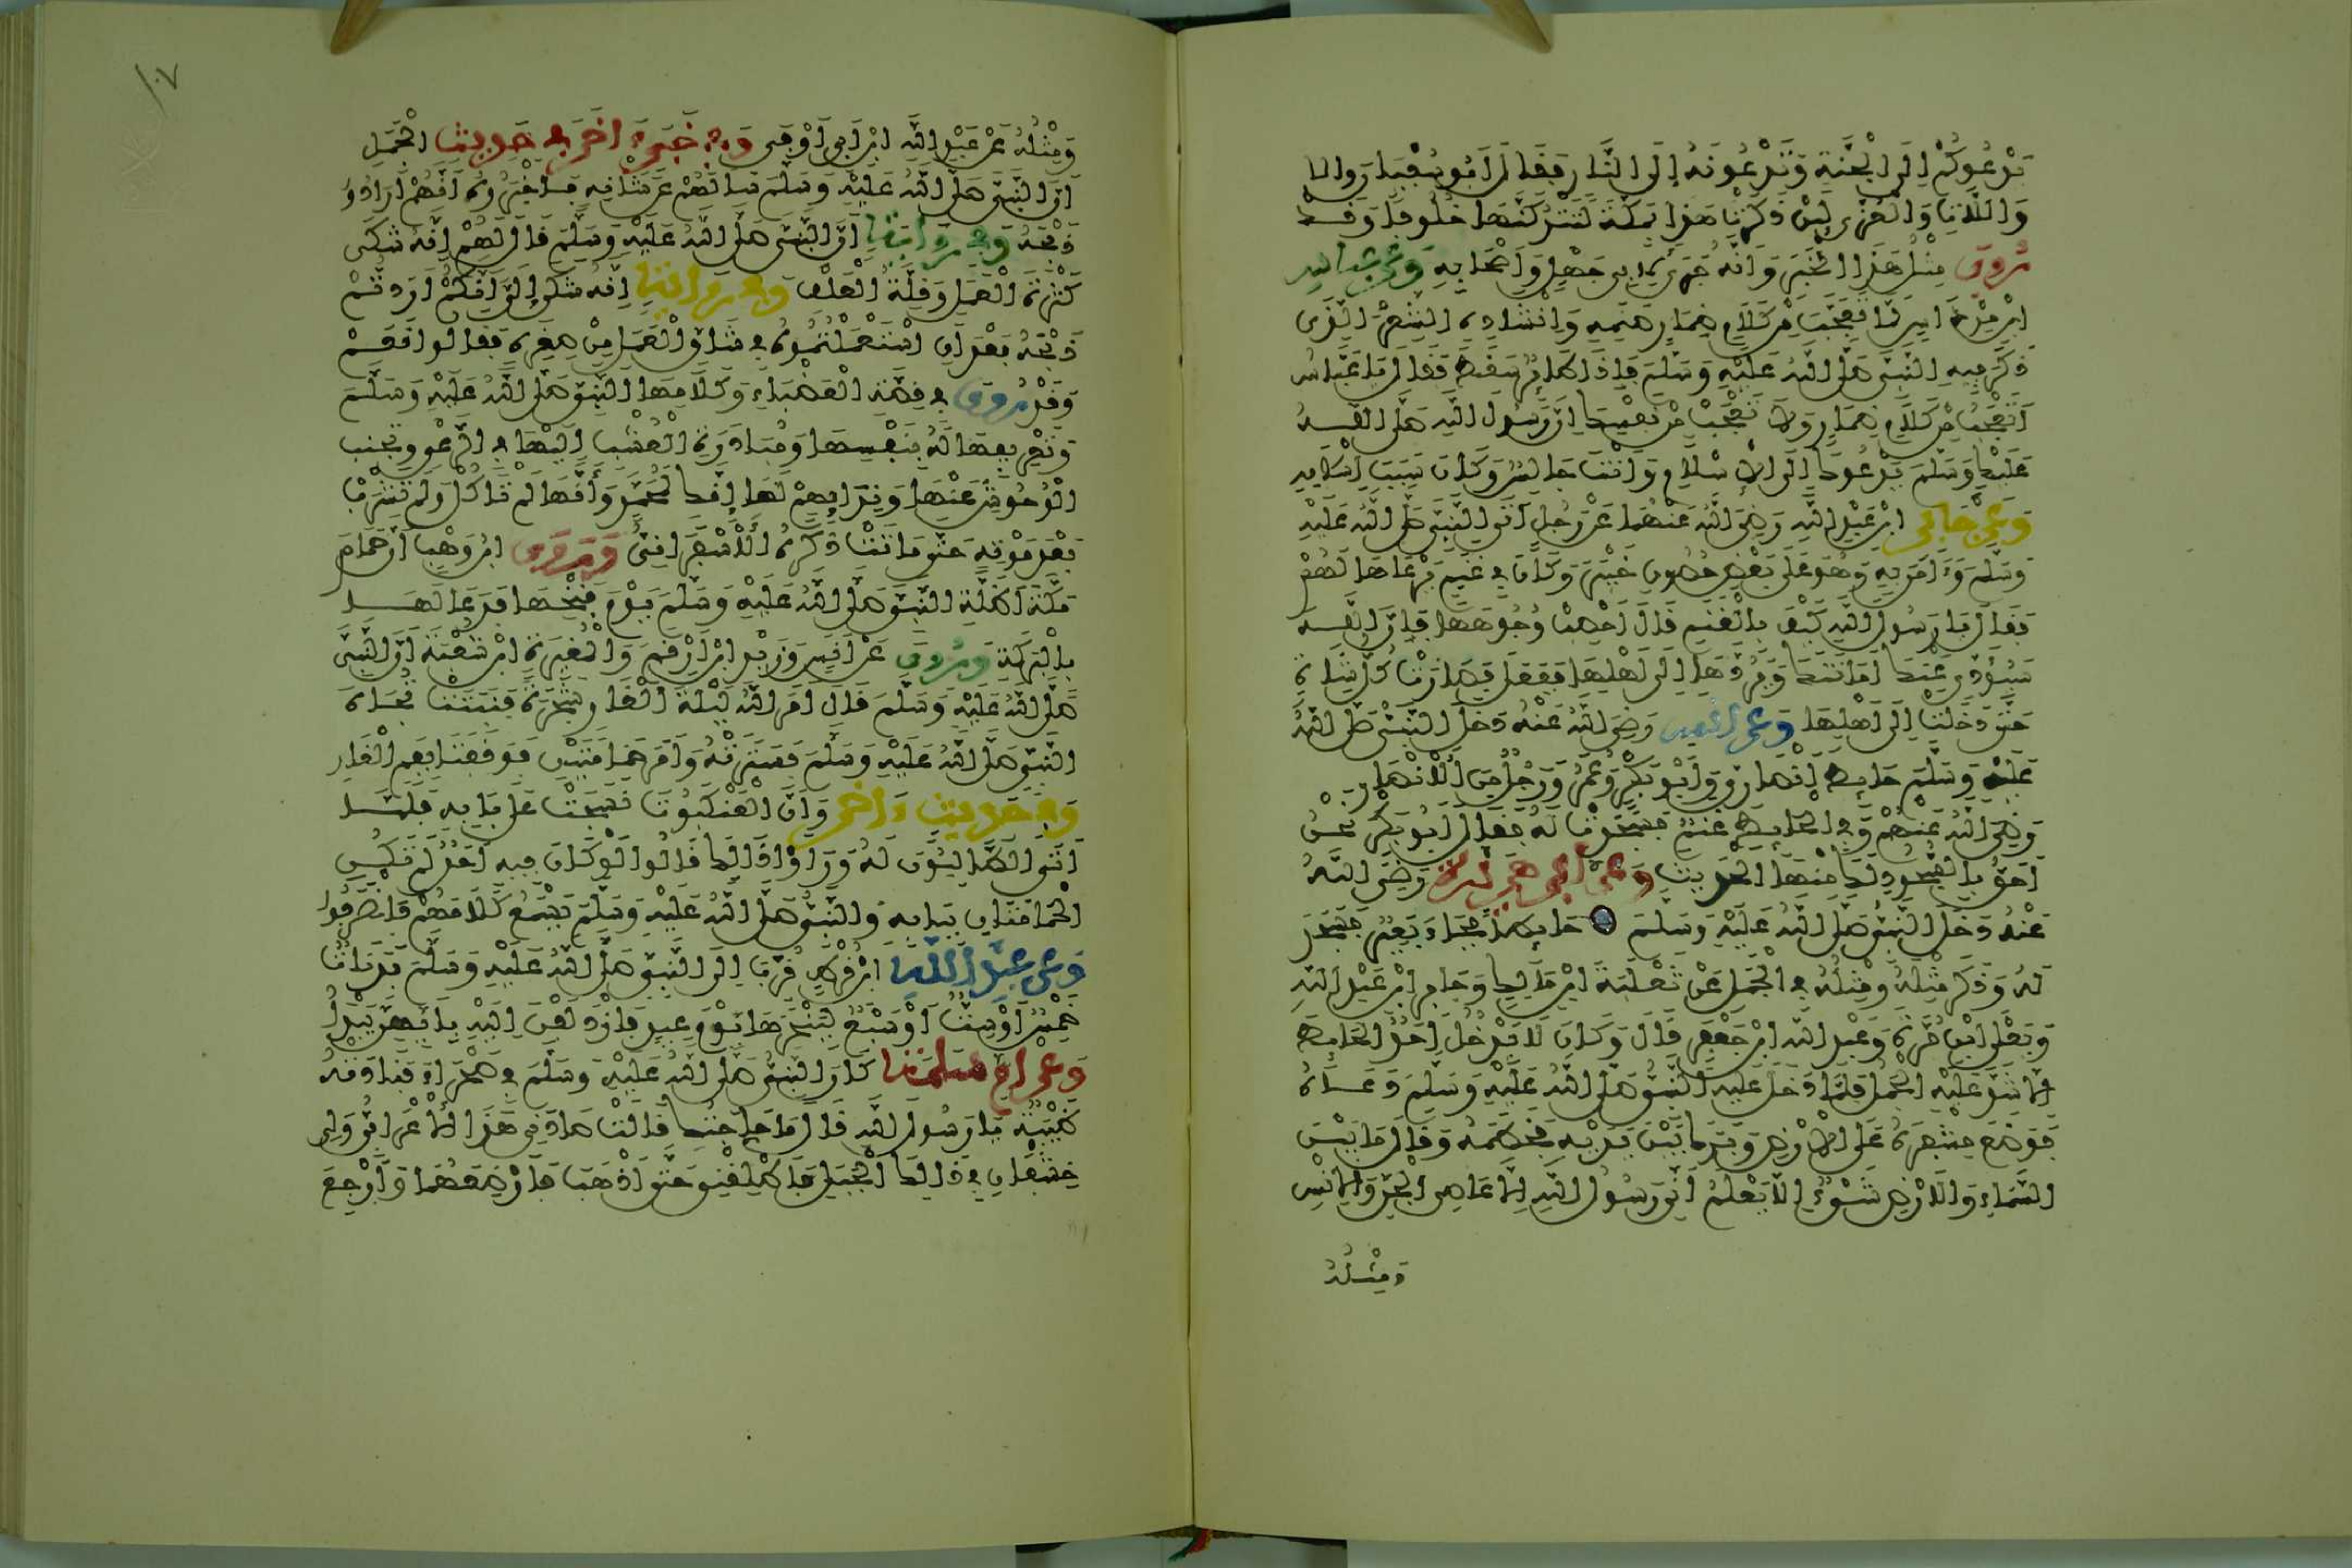 يَدْعُوكُمْ إِلَى الْجَنَّةِ وَتَدْعُونَهُ إِلَى النَّارِ فَقَالَ أَبُو سُفْيَانَ وَاللَّاتِ
وَاللَّاتِ وَالْعُزَّى لَئِنْ ذَكَرْتَ هَذَا بِمَكَّةَ لَتَتْرُكَنَّهَا خُلُوفًا وَقَدْ
رُوِيَ مِثْلُ هَذَا الْخَبَرِ وَأَنَّهُ جَرَى لِأَبِي جَهْلٍ وَأَصْحَابِهِ وَعَنْ عَبَّاسِ
ابْنِ مِرْدَاسٍ لَمَّا تَعَجَّبَ مِنْ كَلَامِ ضِمَارٍ صَنَمِهِ وَإِنْشَادِهِ الشِّعْرَ الَّذِي
ذَكَرَ فِيهِ النَّبِيَّ صَلَّى اللَّهُ عَلَيْهِ وَسَلَّمَ فَإِذَا طَائِرٌ سَقَطَ فَقَالَ يَا عَبَّاسُ
أَتَعْجَبُ مِنْ كَلَامِ ضِمَارٍ وَلَا تَعْجَبُ مِنْ نَفْسِكَ إِنَّ رَسُولَ اللَّهِ صَلَّى اللَّهُ
عَلَيْهِ وَسَلَّمَ يَدْعُو إِلَى الْإِسْلَامِ وَأَنْتَ جَالِسٌ وَكَانَ سَبَبَ إِسْلَامِهِ
وَعَنْ جَابِرِ ابْنِ عَبْدِ اللَّهِ رَضِيَ اللَّهُ عَنْهُمَا عَنْ رَجُلٍ أَتَى النَّبِيَّ صَلَّى اللَّهُ عَلَيْهِ
وَسَلَّمَ وَءَامَنَ بِهِ وَهُوَ عَلَى بَعْضِ حُصُونِ خَيْبَرَ وَكَانَ فِي غَنَمٍ يَرْعَاهَا لَهُمْ
فَقَالَ يَا رَسُولَ اللَّهِ كَيْفَ بِالْغَنَمِ قَالَ احْصِبْ وُجُوهَهَا فَإِنَّ اللَّهَ
سَيُؤَدِّي عَنْكَ أَمَانَتَكَ وَيَرُدُّهَا إِلَى أَهْلِهَا فَفَعَلَ فَصَارَتْ كُلُّ شَاةٍ
حَتَّى دَخَلَتْ إِلَى أَهْلِهَا وَعَنْ أَنَسٍ رَضِيَ اللَّهُ عَنْهُ دَخَلَ النَّبِيُّ صَلَّى اللَّهُ
عَلَيْهِ وَسَلَّمَ حَائِطَ أَنْصَارِيٍّ وَأَبُو بَكْرٍ وَعُمَرُ وَرَجُلٌ مِنَ الْأَنْصَارِ
رَضِيَ اللَّهُ عَنْهُمْ وَفِي الْحَائِطِ غَنَمٌ فَسَجَدَتْ لَهُ فَقَالَ أَبُو بَكْرٍ نَحْنُ
أَحَقُّ بِالسُّجُودِ لَكَ مِنْهَا الْحَدِيثَ وَعَنْ أَبِي هُرَيْرَةَ رَضِيَ اللَّهُ
عَنْهُ دَخَلَ النَّبِيُّ صَلَّى اللَّهُ عَلَيْهِ وَسَلَّمَ حَائِطًا فَجَاءَ بَعِيرٌ فَسَجَدَ
لَهُ وَذَكَرَ مِثْلَهُ وَمِثْلُهُ فِي الْجَمَلِ عَنْ ثَعْلَبَةَ ابْنِ مَالِكٍ وَجَابِرِ ابْنِ عَبْدِ اللَّهِ
وَيَعْلَى ابْنِ مُرَّةَ وَعَبْدِ اللَّهِ ابْنِ جَعْفَرٍ قَالَ وَكَانَ لَا يَدْخُلُ أَحَدٌ الْحَائِطَ
إِلَّا شَدَّ عَلَيْهِ الْجَمَلُ فَلَمَّا دَخَلَ عَلَيْهِ النَّبِيُّ صَلَّى اللَّهُ عَلَيْهِ وَسَلَّمَ دَعَاهُ
فَوَضَعَ مِشْفَرَهُ عَلَى الْأَرْضِ وَبَرَكَ بَيْنَ يَدَيْهِ فَخَطَمَهُ وَقَالَ مَا بَيْنَ
السَّمَاءِ وَالْأَرْضِ شَيْءٌ إِلَّا يَعْلَمُ أَنِّي رَسُولُ اللَّهِ إِلَّا عَاصِي الْجِنِّ وَالْإِنْسِ
وَمِثْلُهُ
١٠٧
وَمِثْلُهُ عَنْ عَبْدِ اللَّهِ ابْنِ أَبِي أَوْفَى وَفِي خَبَرٍ ءَاخَرَ فِي حَدِيثِ الْجَمَلِ
أَنَّ النَّبِيَّ صَلَّى اللَّهُ عَلَيْهِ وَسَلَّمَ سَأَلَهُمْ عَنْ شَأْنِهِ فَأَخْبَرُوهُ أَنَّهُمْ أَرَادُوا
ذَبْحَهُ وَفِي رِوَايَةٍ أَنَّ النَّبِيَّ صَلَّى اللَّهُ عَلَيْهِ وَسَلَّمَ قَالَ لَهُمْ إِنَّهُ شَكَى
كَثْرَةَ الْعَمَلِ وَقِلَّةَ الْعَلَفِ وَفِي رِوَايَةٍ إِنَّهُ شَكَى إِلَيَّ أَنَّكُمْ أَرَدْتُمْ
ذَبْحَهُ بَعْدَ أَنِ اسْتَعْمَلْتُمُوهُ فِي شَاقِّ الْعَمَلِ مِنْ صِغَرِهِ فَقَالُوا نَعَمْ
وَقَدْ رُوِيَ فِي قِصَّةِ الْعَضْبَاءِ وَكَلَامِهَا النَّبِيَّ صَلَّى اللَّهُ عَلَيْهِ وَسَلَّمَ
وَتَعْرِيفِهَا لَهُ بِنَفْسِهَا وَمُبَادَرَةِ الْعُشْبِ إِلَيْهَا فِي الرَّعْيِ وَتَجَنُّبِ
الْوُحُوشِ عَنْهَا وَنِدَائِهِمْ لَهَا إِنَّكِ لِمُحَمَّدٍ وَأَنَّهَا لَمْ تَأْكُلْ وَلَمْ تَشْرَبْ
بَعْدَ مَوْتِهِ حَتَّى مَاتَتْ ذَكَرَهُ الْأَسْفَرَايِنِيُّ وَقَدْ رَوَى ابْنُ وَهْبٍ أَنَّ حَمَامَ
مَكَّةَ أَظَلَّتِ النَّبِيَّ صَلَّى اللَّهُ عَلَيْهِ وَسَلَّمَ يَوْمَ فَتْحِهَا فَدَعَا لَهَا
بِالْبَرَكَةِ وَرُوِيَ عَنْ أَنَسٍ وَزَيْدِ ابْنِ أَرْقَمَ وَالْمُغِيرَةِ ابْنِ شُعْبَةَ أَنَّ النَّبِيَّ
صَلَّى اللَّهُ عَلَيْهِ وَسَلَّمَ قَالَ أَمَرَ اللَّهُ لَيْلَةَ الْغَارِ شَجَرَةً فَنَبَتَتْ تُجَاهَ
النَّبِيِّ صَلَّى اللَّهُ عَلَيْهِ وَسَلَّمَ فَسَتَرَتْهُ وَأَمَرَ حَمَامَتَيْنِ فَوَقَفَتَا بِفَمِ الْغَارِ
وَفِي حَدِيثٍ ءَاخَرَ وَأَنَّ الْعَنْكَبُوتَ نَسَجَتْ عَلَى بَابِهِ فَلَمَّا
أَتَى الطَّالِبُونَ لَهُ وَرَأَوْا ذَالِكَ قَالُوا لَوْ كَانَ فِيهِ أَحَدٌ لَمْ تَكُنِ
الْحَمَامَتَانِ بِبَابِهِ وَالنَّبِيُّ صَلَّى اللَّهُ عَلَيْهِ وَسَلَّمَ يَسْمَعُ كَلَامَهُمْ فَانْصَرَفُوا
وَعَنْ عَبْدِ اللَّهِ ابْنِ قُرْطٍ قُرِّبَ إِلَى النَّبِيِّ صَلَّى اللَّهُ عَلَيْهِ وَسَلَّمَ بَدَنَاتٌ
خَمْسٌ أَوْ سِتٌّ أَوْ سَبْعٌ لِيَنْحَرَهَا يَوْمَ عِيدٍ فَازْدَلَفْنَ إِلَيْهِ بِأَيِّهِنَّ يَبْدَأُ
وَعَنْ أُمِّ سَلَمَةَ كَانَ النَّبِيُّ صَلَّى اللَّهُ عَلَيْهِ وَسَلَّمَ فِي صَحْرَاءَ فَنَادَتْهُ
ظَبْيَةٌ يَا رَسُولَ اللَّهِ قَالَ مَا حَاجَتُكِ قَالَتْ صَادَنِي هَذَا الْأَعْرَابِيُّ وَلِي
خِشْفَانِ فِي ذَالِكَ الْجَبَلِ فَأَطْلِقْنِي حَتَّى أَذْهَبَ فَأُرْضِعَهُمَا وَأَرْجِعَ